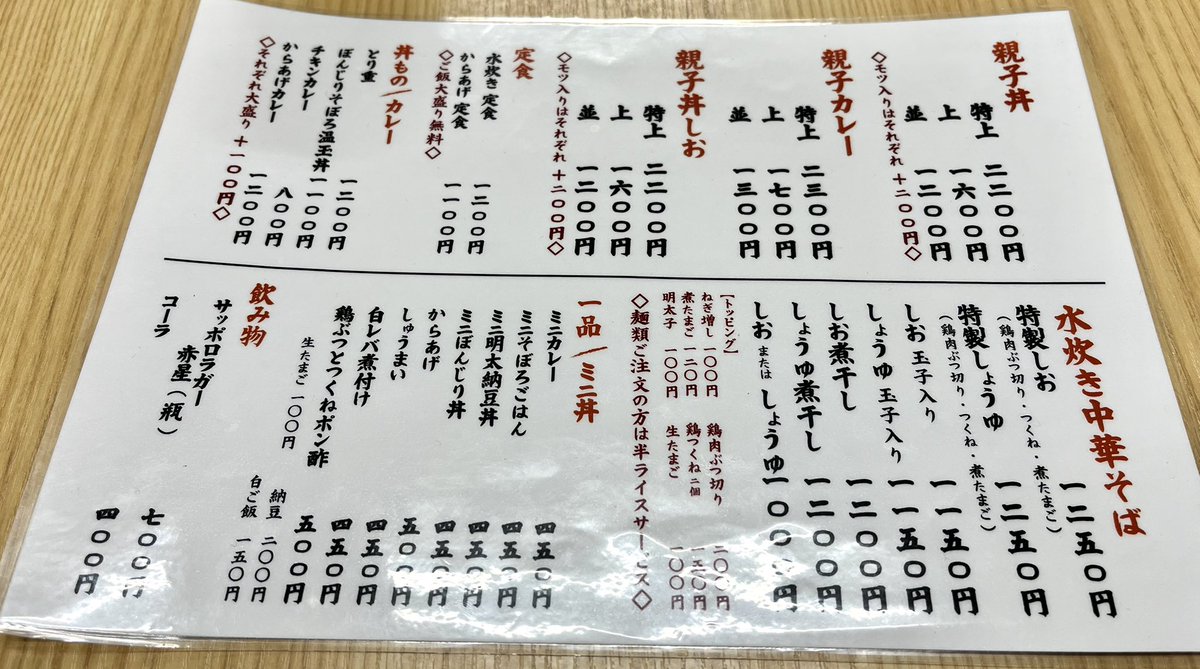 親子丼
特上 二二〇〇円
上 一六〇〇円
並 一二〇〇円
◇モツ入りはそれぞれ+二〇〇円◇
親子カレー
特上 二三〇〇円
上 一七〇〇円
並 一三〇〇円
親子丼しお
特上 二二〇〇円
上 一六〇〇円
並 一二〇〇円
◇モツ入りはそれぞれ+二〇〇円◇
定食
水炊き定食 一二〇〇円
からあげ定食 一一〇〇円
◇ご飯大盛り無料◇
丼もの/カレー
とり重 一二〇〇円
ぼんじりそぼろ温玉丼 一一〇〇円
チキンカレー 八〇〇円
からあげカレー 一二〇〇円
◇それぞれ大盛り+一〇〇円◇
水炊き中華そば
特製しお 一二五〇円
(鶏肉ぶつ切り・つくね・煮たまご)
特製しょうゆ 一二五〇円
(鶏肉ぶつ切り・つくね・煮たまご)
しお 玉子入り 一一五〇円
しょうゆ 玉子入り 一一五〇円
しお煮干し 一二〇〇円
しょうゆ煮干し 一二〇〇円
しお または しょうゆ 一〇〇〇円
【トッピング】
ねぎ増し 一〇〇円 鶏肉ぶつ切り 二〇〇円
煮たまご 一二〇円 鶏つくね二個 一五〇円
明太子 一〇〇円 生たまご 一〇〇円
◇麺類ご注文の方は半ライスサービス◇
一品/ミニ丼
ミニカレー 四五〇円
ミニそぼろごはん 四五〇円
ミニ明太納豆丼 四五〇円
ミニぼんじり丼 四五〇円
からあげ 五〇〇円
しゅうまい 四五〇円
白レバ煮付け 四五〇円
鶏ぶつとつくねポン酢 五〇〇円
生たまご 一〇〇円 納豆 二〇〇円
白ご飯 一五〇円
飲み物
サッポロラガー
赤星(瓶) 七〇〇円
コーラ 四〇〇円